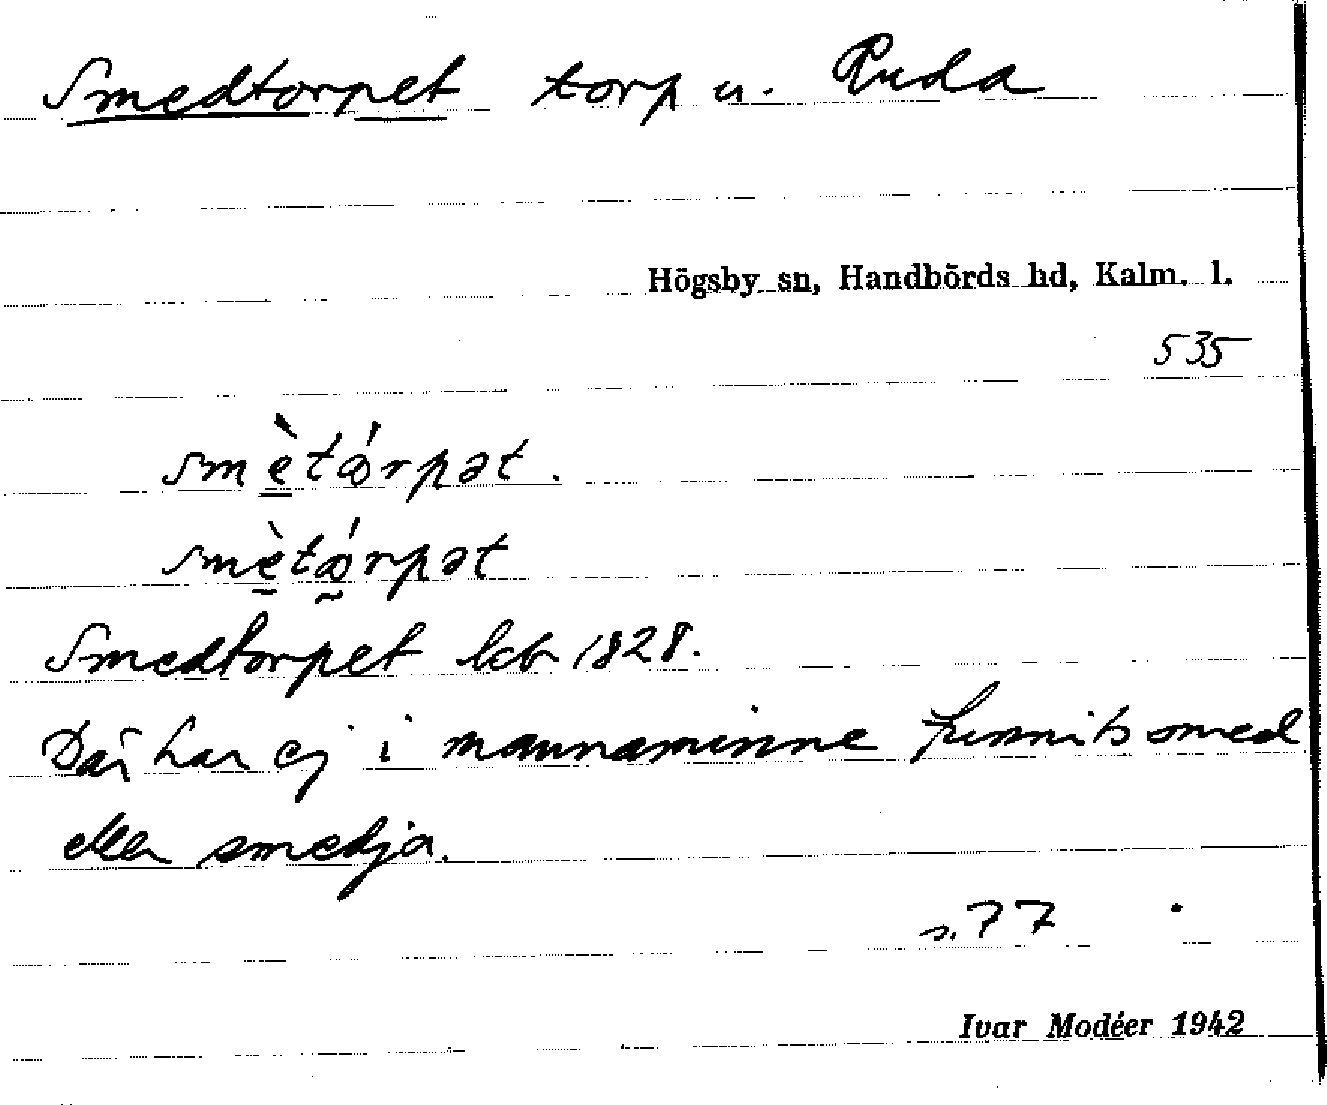 Smedtorpet torp u. Ruda
Högsby sn, Handbörds hd, Kalm. l.
535
smètǻrpət.
smètǻrpət
Smedtorpet lcb 1828.
Där har ej i mannaminne funnits smed
eller smedja.
s. 77
Ivar Modéer 1942